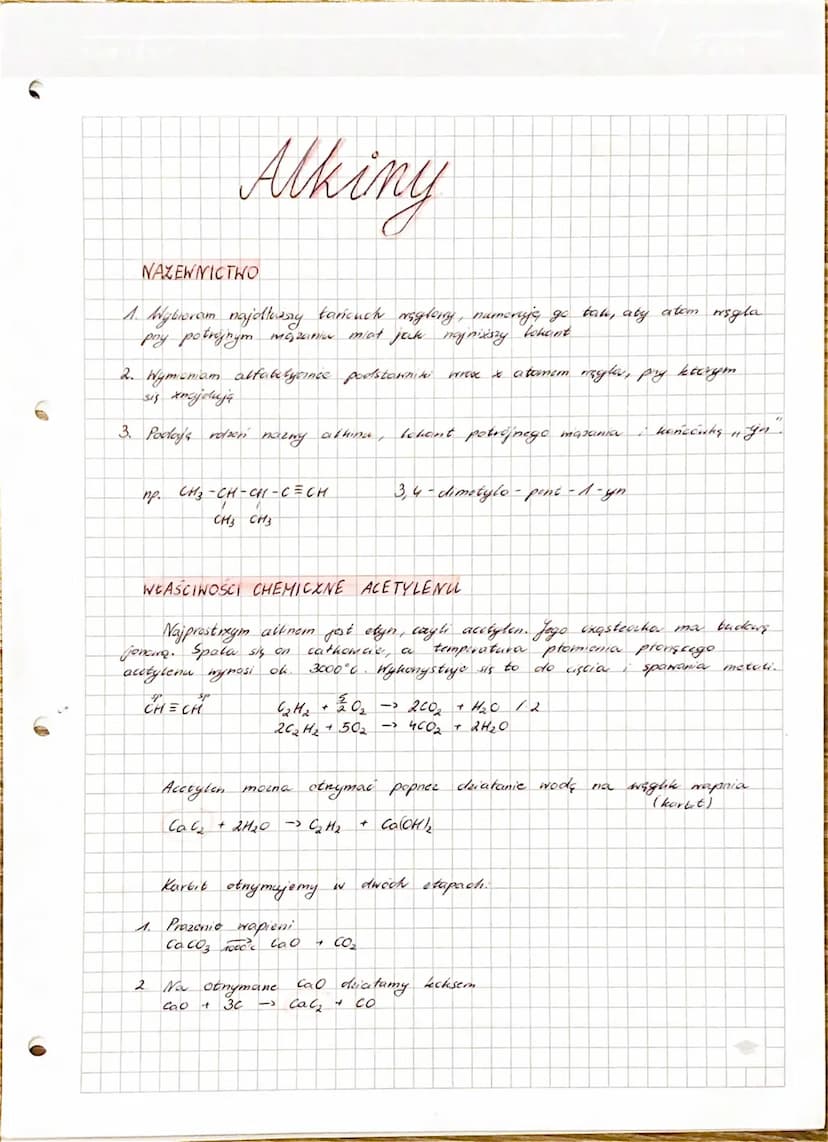 Alkiny
NAZEWNICTWO
1. Wybieram najdłuższy łańcuch węglowy, numeruję go tak, aby atom węgla
przy potrójnym wiązaniu miał jak najniższy lokant
2. Wymieniam alfabetycznie podstawniki wraz z atomem węgla, przy którym
się znajdują
3. Podaję rdzeń nazwy alkinu, lokant potrójnego wiązania i końcówkę „-yn".
np. CH₃-CH-CH-C≡CH 3,4-dimetylo-pent-1-yn
CH₃ CH₃
WŁAŚCIWOŚCI CHEMICZNE ACETYLENU
Najprostszym alkinem jest etyn, czyli acetylen. Jego cząsteczka ma budowę
Spala się on całkowicie, a temperatura płomienia płonącego
acetylenu wynosi ok. 3000°C. Wykorzystuje się to do cięcia i spawania metali.
sp sp
CH≡CH C₂H₂ + 5/2 O₂ → 2CO₂ + H₂O / 2
2C₂H₂ + 5O₂ → 4CO₂ + 2H₂O
Acetylen można otrzymać poprzez działanie wodą na węglik wapnia
(karbit)
CaC₂ + 2H₂O → C₂H₂ + Ca(OH)₂
Karbit otrzymujemy w dwóch etapach:
1. Prażenie wapieni
CaCO₃ 1000°C CaO + CO₂
2 Na otrzymane CaO działamy koksem
CaO + 3C → CaC₂ + CO